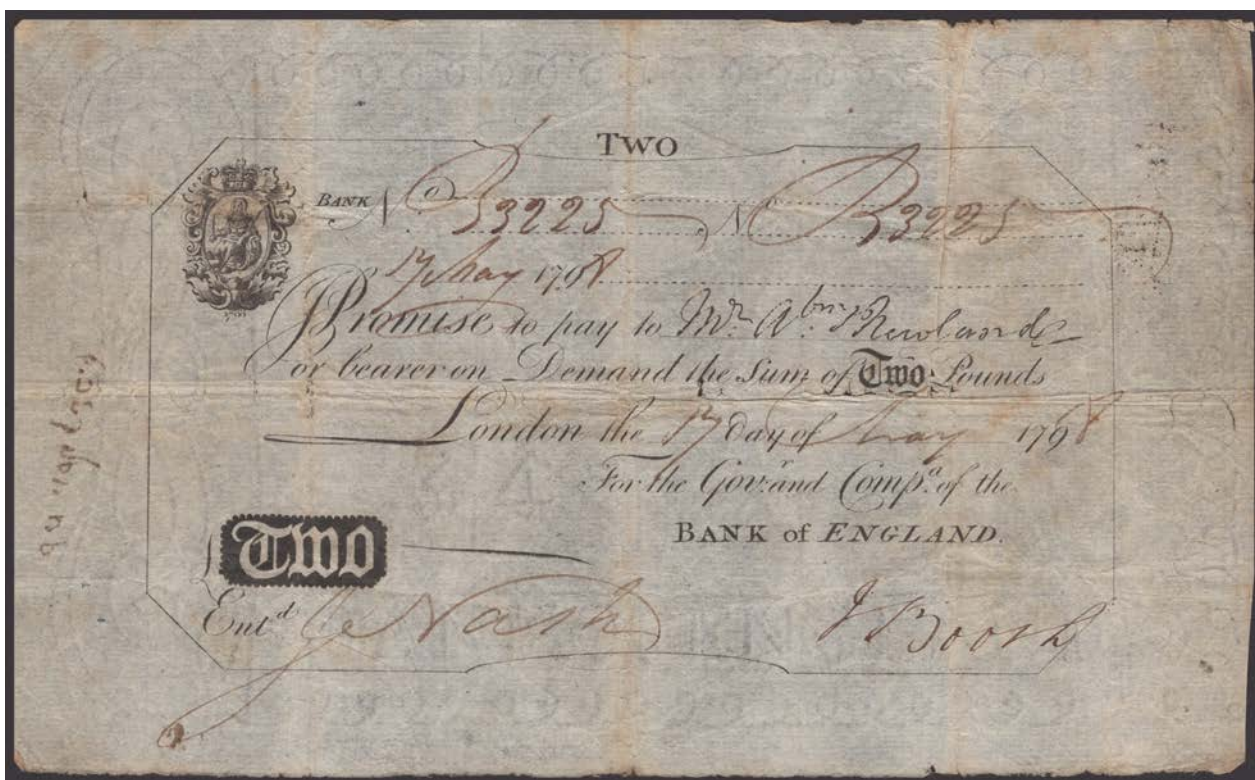 TWO
BANK No 3225 No 3225
17 May 1798
I Promise to pay to Mr. Abm. Newland
or bearer on Demand the Sum of Two Pounds
London the 17 day of May 1798
For the Govr. and Compa. of the
BANK of ENGLAND.
£ Two
Entd. J Nash
J Booth